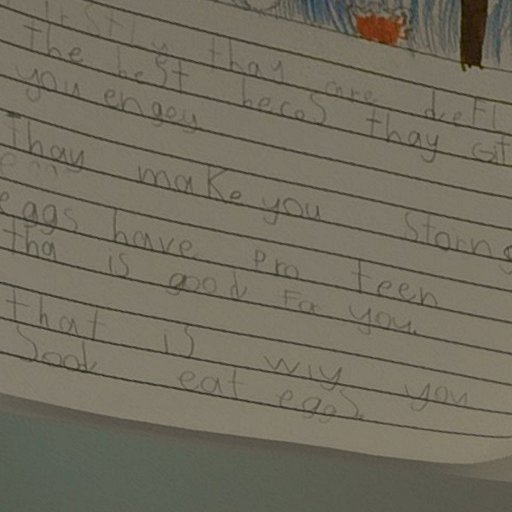 thay are
the best becos thay Git
you engey
Thay make you Storng
eggs have pro teen
tha is good Fo you.
that is wiy you
Sood eat eggs.